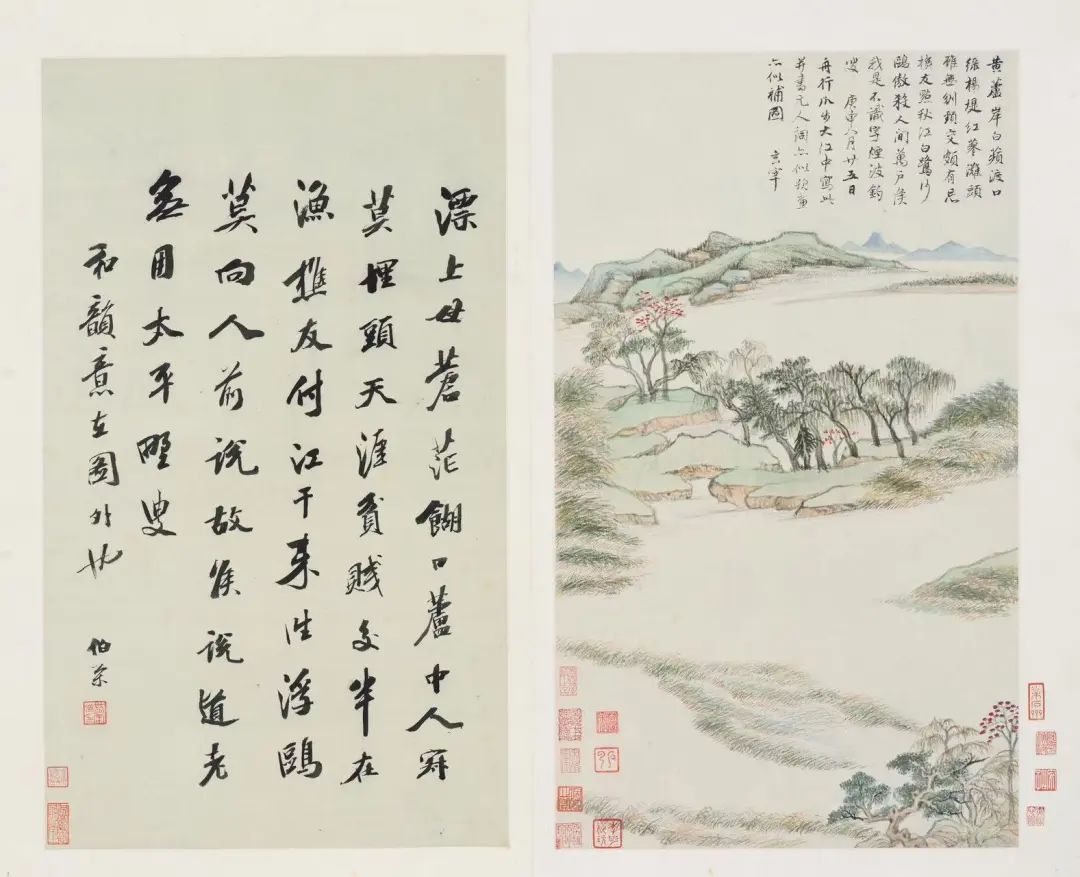 黄蘆岸白蘋渡口
綠楊堤紅蓼灘頭
雖無刎頸交頗有忘
機友點秋江白鷺沙
鷗傲殺人間萬戶侯
我是不識字煙波釣
叟 庚申八月廿五日
舟行瓜步大江中寫此
并書元人詞亦似
亦似補圖
玄宰
漂上母蒼茫餬口蘆中人
莫埋頭天涯貧賤交半在
漁樵友付江干來往浮鷗
莫向人前說故侯說道老
無用太平野叟
和韻意在圖外也
伯